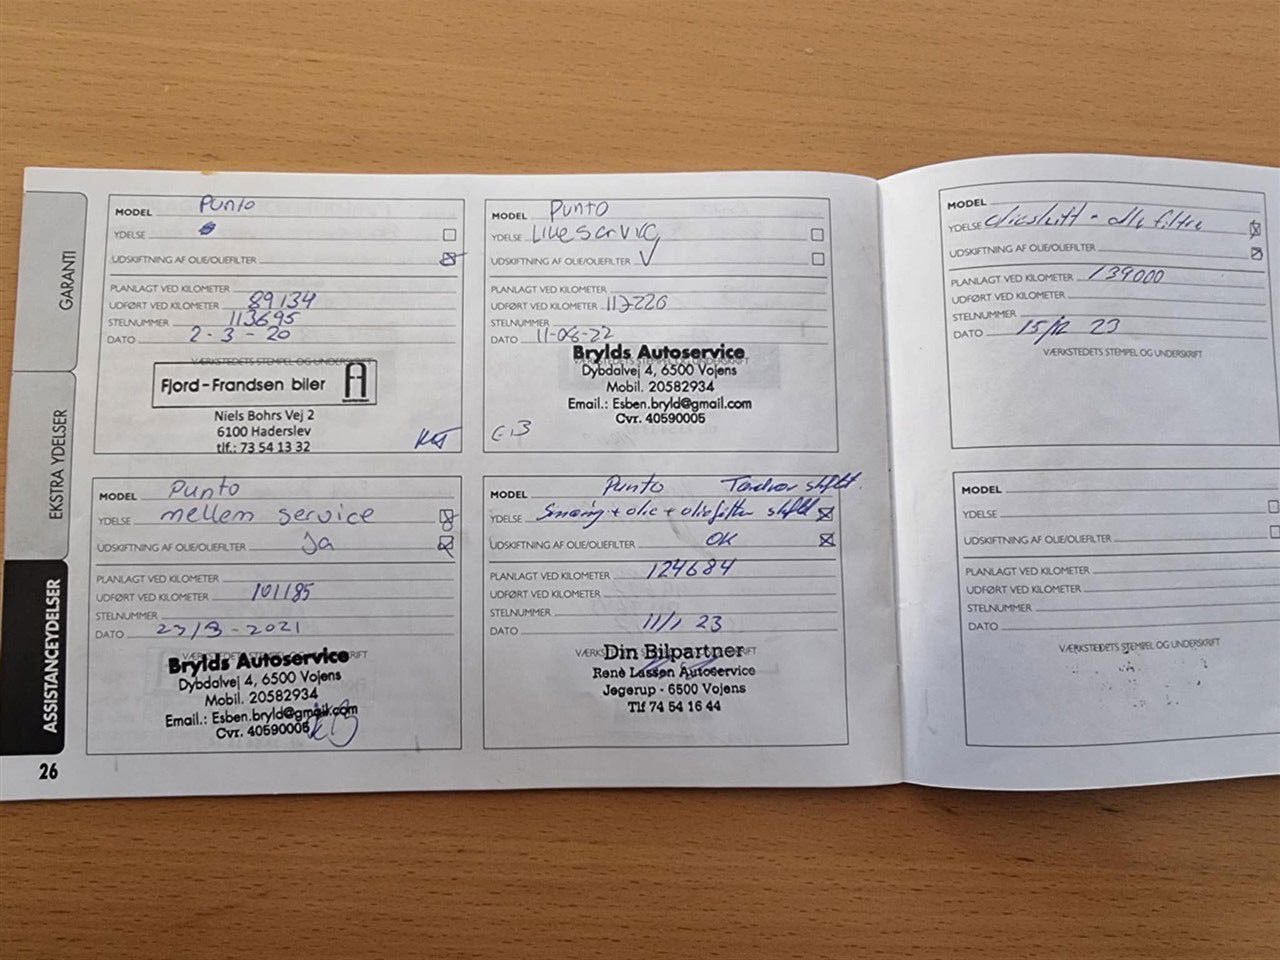 GARANTI
EKSTRA YDELSER
ASSISTANCEYDELSER
26
MODEL Punto
YDELSE
UDSKIFTNING AF OLIE/OLIEFILTER
PLANLAGT VED KILOMETER
UDFØRT VED KILOMETER 89134
STELNUMMER 113695
DATO 2-3-20
VÆRKSTEDETS STEMPEL OG UNDERSKRIFT
Fjord-Frandsen biler
Niels Bohrs Vej 2
6100 Haderslev
tlf.: 73 54 13 32
MODEL Punto
YDELSE mellem service
UDSKIFTNING AF OLIE/OLIEFILTER Ja
PLANLAGT VED KILOMETER
UDFØRT VED KILOMETER 101185
STELNUMMER
DATO - 2021
Brylds Autoservice
Dybdalvej 4, 6500 Vojens
Mobil. 20582934
Email.: Esben.bryld@gmail.com
Cvr. 40590005
MODEL Punto
YDELSE
UDSKIFTNING AF OLIE/OLIEFILTER
PLANLAGT VED KILOMETER
UDFØRT VED KILOMETER
STELNUMMER
DATO 11-08-22
VÆRKSTEDETS STEMPEL OG UNDERSKRIFT
Brylds Autoservice
Dybdalvej 4, 6500 Vojens
Mobil. 20582934
Email.: Esben.bryld@gmail.com
Cvr. 40590005
EB
MODEL Punto Tandrem skiftet.
YDELSE + olie + oliefilter skiftet
UDSKIFTNING AF OLIE/OLIEFILTER OK
PLANLAGT VED KILOMETER 124684
UDFØRT VED KILOMETER
STELNUMMER
DATO 11/1 23
Din Bilpartner
Renè Lassen Autoservice
Jegerup - 6500 Vojens
Tlf 74 54 16 44
MODEL
YDELSE Olieskift + alle filtre
UDSKIFTNING AF OLIE/OLIEFILTER
PLANLAGT VED KILOMETER 139000
UDFØRT VED KILOMETER
STELNUMMER
DATO 15/12 23
VÆRKSTEDETS STEMPEL OG UNDERSKRIFT
MODEL
YDELSE
UDSKIFTNING AF OLIE/OLIEFILTER
PLANLAGT VED KILOMETER
UDFØRT VED KILOMETER
STELNUMMER
DATO
VÆRKSTEDETS STEMPEL OG UNDERSKRIFT